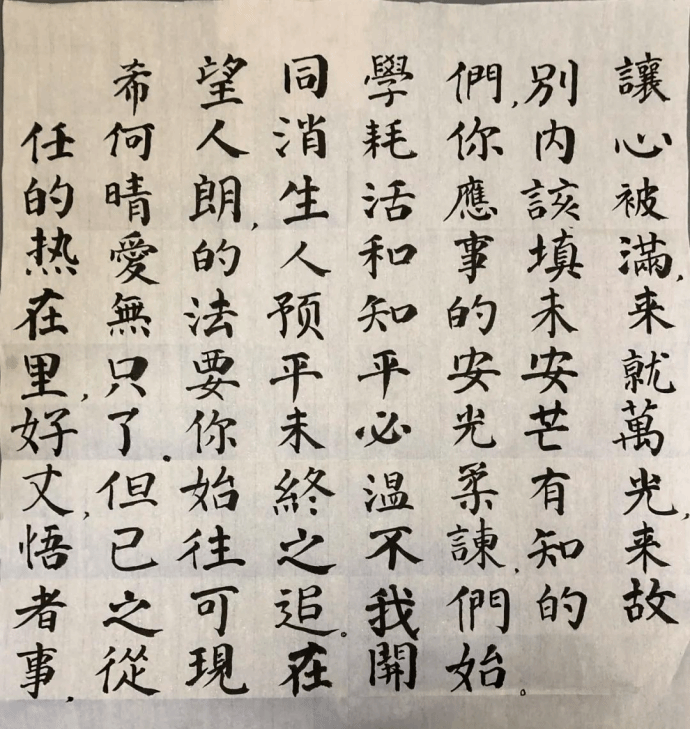 希望同學們,別讓
任何人消耗你内心
的晴朗,生活應該被
热愛的人和事填滿,
在無法预知的未来
里,只要平平安安就
好了.你未必光芒萬
丈,但始終温柔有光,
悟已往之不諫,知来
者之可追。我們的故
事,從現在開始。